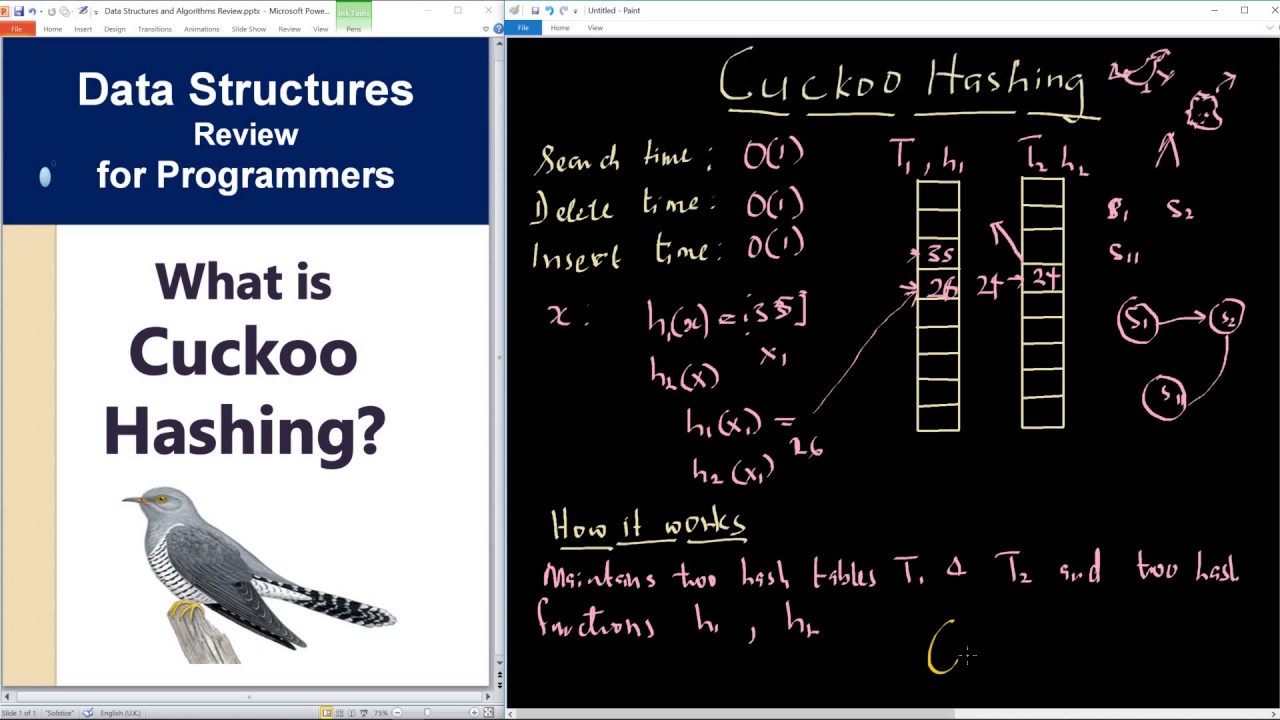 Data Structures and Algorithms Review.pptx - Microsoft Powe...
Ink Tools
File Home Insert Design Transitions Animations Slide Show Review View Pens
Data Structures
Review
for Programmers
What is
Cuckoo
Hashing?
Slide 1 of 1 "Solstice" English (U.K.) 75%
Untitled - Paint
File Home View
Cuckoo Hashing
Search time: O(1)
Delete time: O(1)
Insert time: O(1)
T₁, h₁ T₂ h₂
35
26 24 24
S₁ S₂
S₁₁
S₁ S₂
S₁₁
x: h₁(x) = [35]
x₁
h₂(x)
h₁(x₁) =
26
h₂(x₁)
How it works
Maintains two hash tables T₁ & T₂ and two hash
functions h₁, h₂